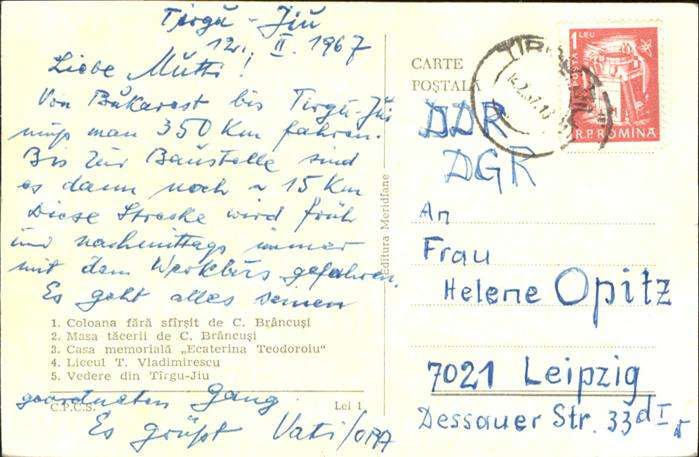 Tirgu-Jiu
12. II. 1967
Liebe Mutti!
Von Bukarest bis Tirgu-Jiu
muß man 350 Km fahren.
Bis zur Baustelle sind
es dann noch ~ 15 Km
Diese Strecke wird früh
und nachmittags immer
mit dem Werkbus gefahren.
Es geht alles seinen
1. Coloana fără sfîrșit de C. Brâncuși
2. Masa tăcerii de C. Brâncuși
3. Casa memorială „Ecaterina Teodoroiu"
4. Liceul T. Vladimirescu
5. Vedere din Tîrgu-Jiu
geordneten Gang.
C.P.C.S. Lei 1
Es grüßt Vati/OPA
Editura Meridiane
CARTE
POȘTALĂ
1 LEU
POSTA
R.P. ROMINA
DDR
DGR
An
Frau
Helene Opitz
7021 Leipzig
Dessauer Str. 33d I r